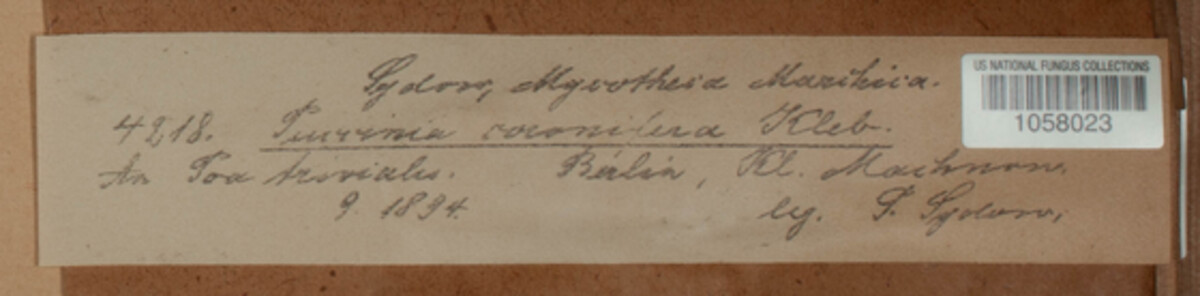 Sydow, Mycotheca Marchica.
4218. Puccinia coronifera Kleb.
An Poa trivialis. Berlin, Kl. Machnow.
9. 1894. leg. P. Sydow.
US NATIONAL FUNGUS COLLECTIONS
1058023